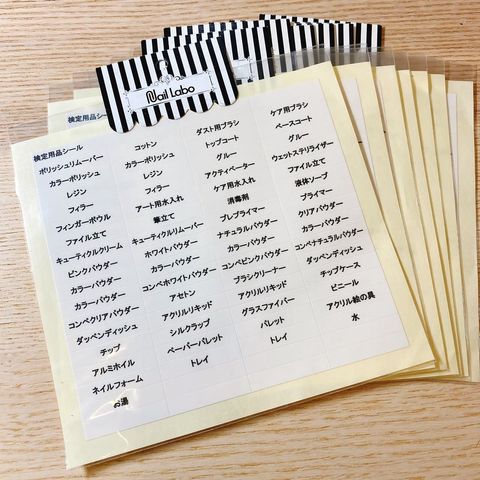 Nail Labo
検定用品シール
ポリッシュリムーバー
カラーポリッシュ
レジン
フィラー
フィンガーボウル
ファイル立て
キューティクルクリーム
ピンクパウダー
カラーパウダー
カラーパウダー
コンペクリアパウダー
ダッペンディッシュ
チップ
アルミホイル
ネイルフォーム
お湯
コットン
カラーポリッシュ
レジン
フィラー
アート用水入れ
筆立て
キューティクルリムーバー
ホワイトパウダー
カラーパウダー
コンペホワイトパウダー
アセトン
アクリルリキッド
シルクラップ
ペーパーパレット
トレイ
ダスト用ブラシ
トップコート
グルー
アクティベーター
ケア用水入れ
消毒剤
プレプライマー
ナチュラルパウダー
カラーパウダー
コンペピンクパウダー
ブラシクリーナー
アクリルリキッド
グラスファイバー
パレット
トレイ
ケア用ブラシ
ベースコート
グルー
ウェットステリライザー
ファイル立て
液体ソープ
プライマー
クリアパウダー
カラーパウダー
コンペナチュラルパウダー
ダッペンディッシュ
チップケース
ビニール
アクリル絵の具
水
検定用品シー